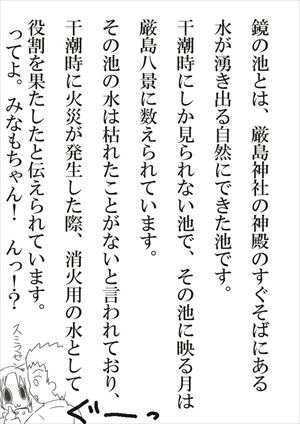 鏡の池とは、厳島神社の神殿のすぐそばにある
水が湧き出る自然にできた池です。
干潮時にしか見られない池で、その池に映る月は
厳島八景に数えられています。
その池の水は枯れたことがないと言われており、
干潮時に火災が発生した際、消火用の水として
役割を果たしたと伝えられています。
ってよ。みなもちゃん！　んっ！？
ぐーっ